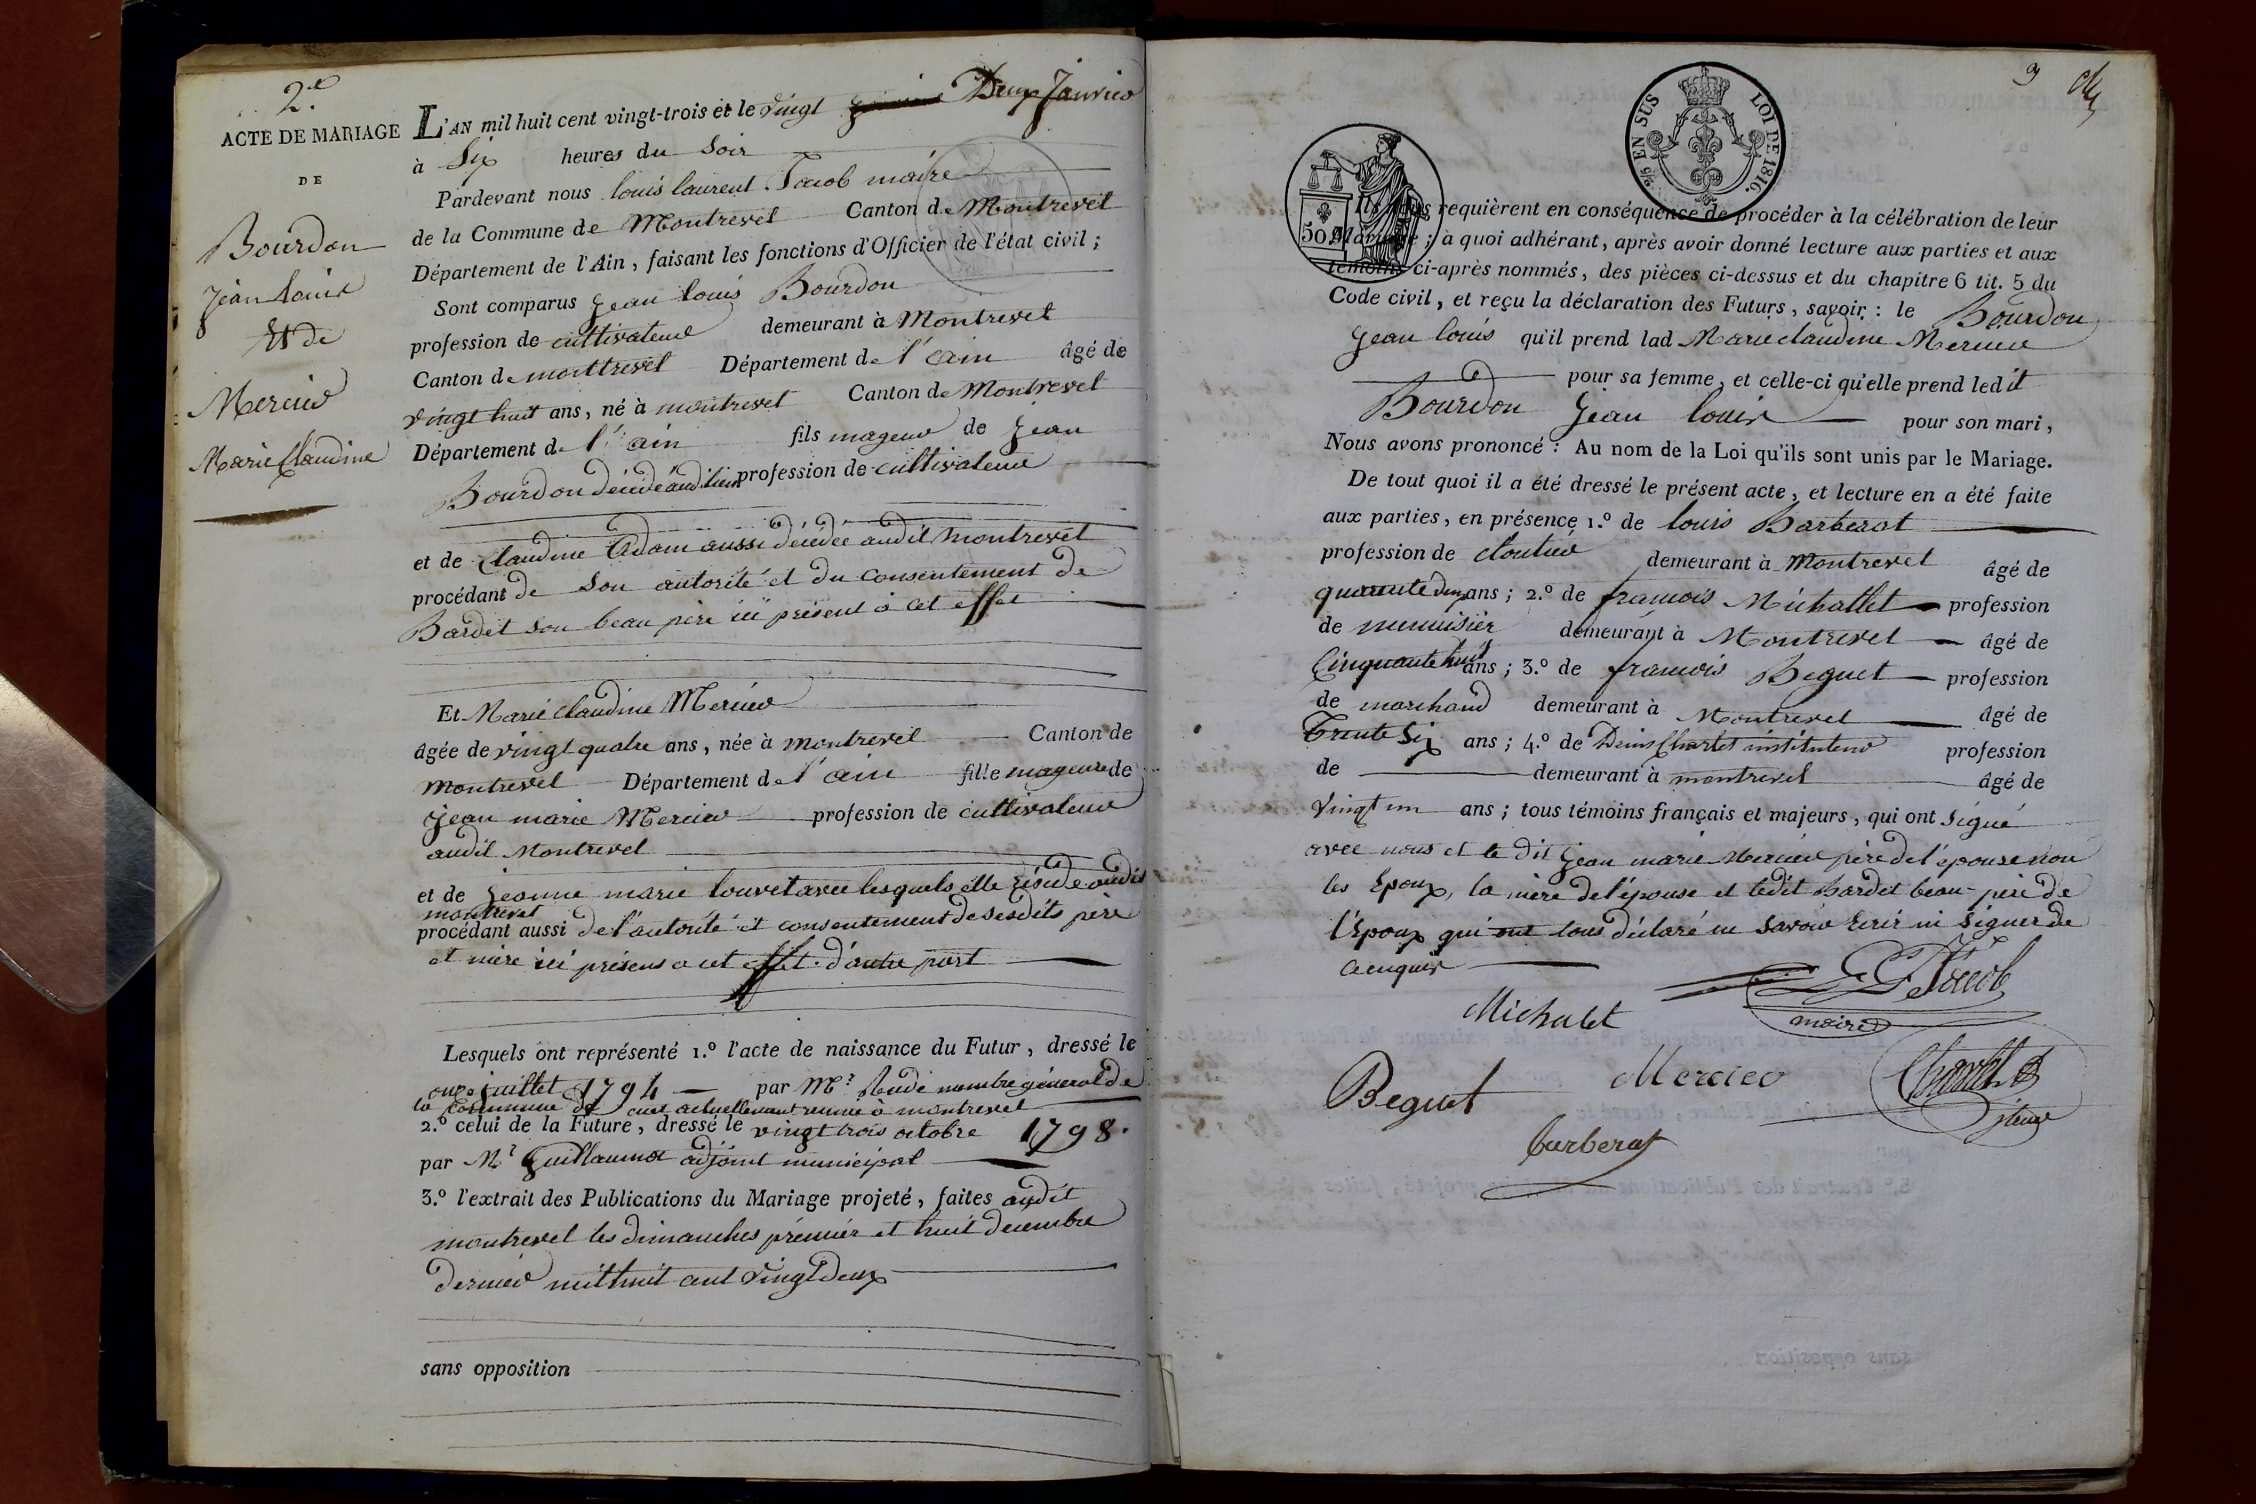 2.e
ACTE DE MARIAGE
DE
Bourdon
Jean Louis
Et de
Mercier
Marie Claudine
L'AN mil huit cent vingt-trois et le vingt Deux Janvier
à Six heures du Soir
Pardevant nous louis laurent Jacob maire
de la Commune de Montrevel Canton de Montrevel
Département de l'Ain, faisant les fonctions d'Officier de l'état civil;
Sont comparus Jean louis Bourdon
profession de cultivateur demeurant à Montrevel
Canton de montrevel Département de l'ain âgé de
vingt huit ans, né à montrevel Canton de Montrevel
Département de l'ain fils mageur de Jean
Bourdon décédé audit lieu profession de cultivateur
et de Claudine Adam aussi décédée audit Montrevel
procédant de Son autorité et du consentement de
Bardet son beau père ici présent à cet effet
Et Marie Claudine Mercier
âgée de vingt quatre ans, née à montrevel Canton de
montrevel Département de l'ain fille mageure de
Jean marie Mercier profession de cultivateur
audit Montrevel
et de Jeanne marie louvet avec lesquels elle réside audit
montrevel
procédant aussi de l'autorité et consentement de sesdits père
et mère ici présens a cet effet. d'autre part
Lesquels ont représenté 1.º l'acte de naissance du Futur, dressé le
onze juillet 1794 par Mr. membre général de
la Commune de cuet actuellement reunie à montrevel
2.º celui de la Future, dressé le vingt trois octobre 1798.
par Mr Guillaumot adjoint municipal
3.º l'extrait des Publications du Mariage projeté, faites audit
montrevel les dimanches prémiér et huit decembre
dernier mil huit cent vingt deux
sans opposition
3
EN SUS LOI DE 1816.
50
Ils nous requièrent en conséquence de procéder à la célébration de leur
Mariage; à quoi adhérant, après avoir donné lecture aux parties et aux
témoins ci-après nommés, des pièces ci-dessus et du chapitre 6 tit. 5 du
Code civil, et reçu la déclaration des Futurs, savoir: le Bourdon
Jean louis qu'il prend lad Marie claudine Mercier
pour sa femme, et celle-ci qu'elle prend ledit
Bourdon Jean louis pour son mari,
Nous avons prononcé: Au nom de la Loi qu'ils sont unis par le Mariage.
De tout quoi il a été dressé le présent acte, et lecture en a été faite
aux parties, en présence 1.º de louis Barberat
profession de cloutier demeurant à Montrevel âgé de
quarante deux ans; 2.º de francois Michallet profession
de menuisier demeurant à Montrevel âgé de
Cinquante huit ans; 3.º de francois Beguet profession
de marchand demeurant à Montrevel âgé de
Trente Six ans; 4.º de Denis Charlet instituteur profession
de demeurant à montrevel âgé de
vingt un ans; tous témoins français et majeurs, qui ont signé
avec nous et le dit Jean marie Mercier père de l'épouse non
les Epoux, la mère de l'épouse et ledit Bardet beau-père de
l'Epoux qui ont tous déclaré ne savoir Ecrir ni signer de
ce enquis
Michalet
L L Jacob
maire
Beguet
Mercier
Charlet
barberat